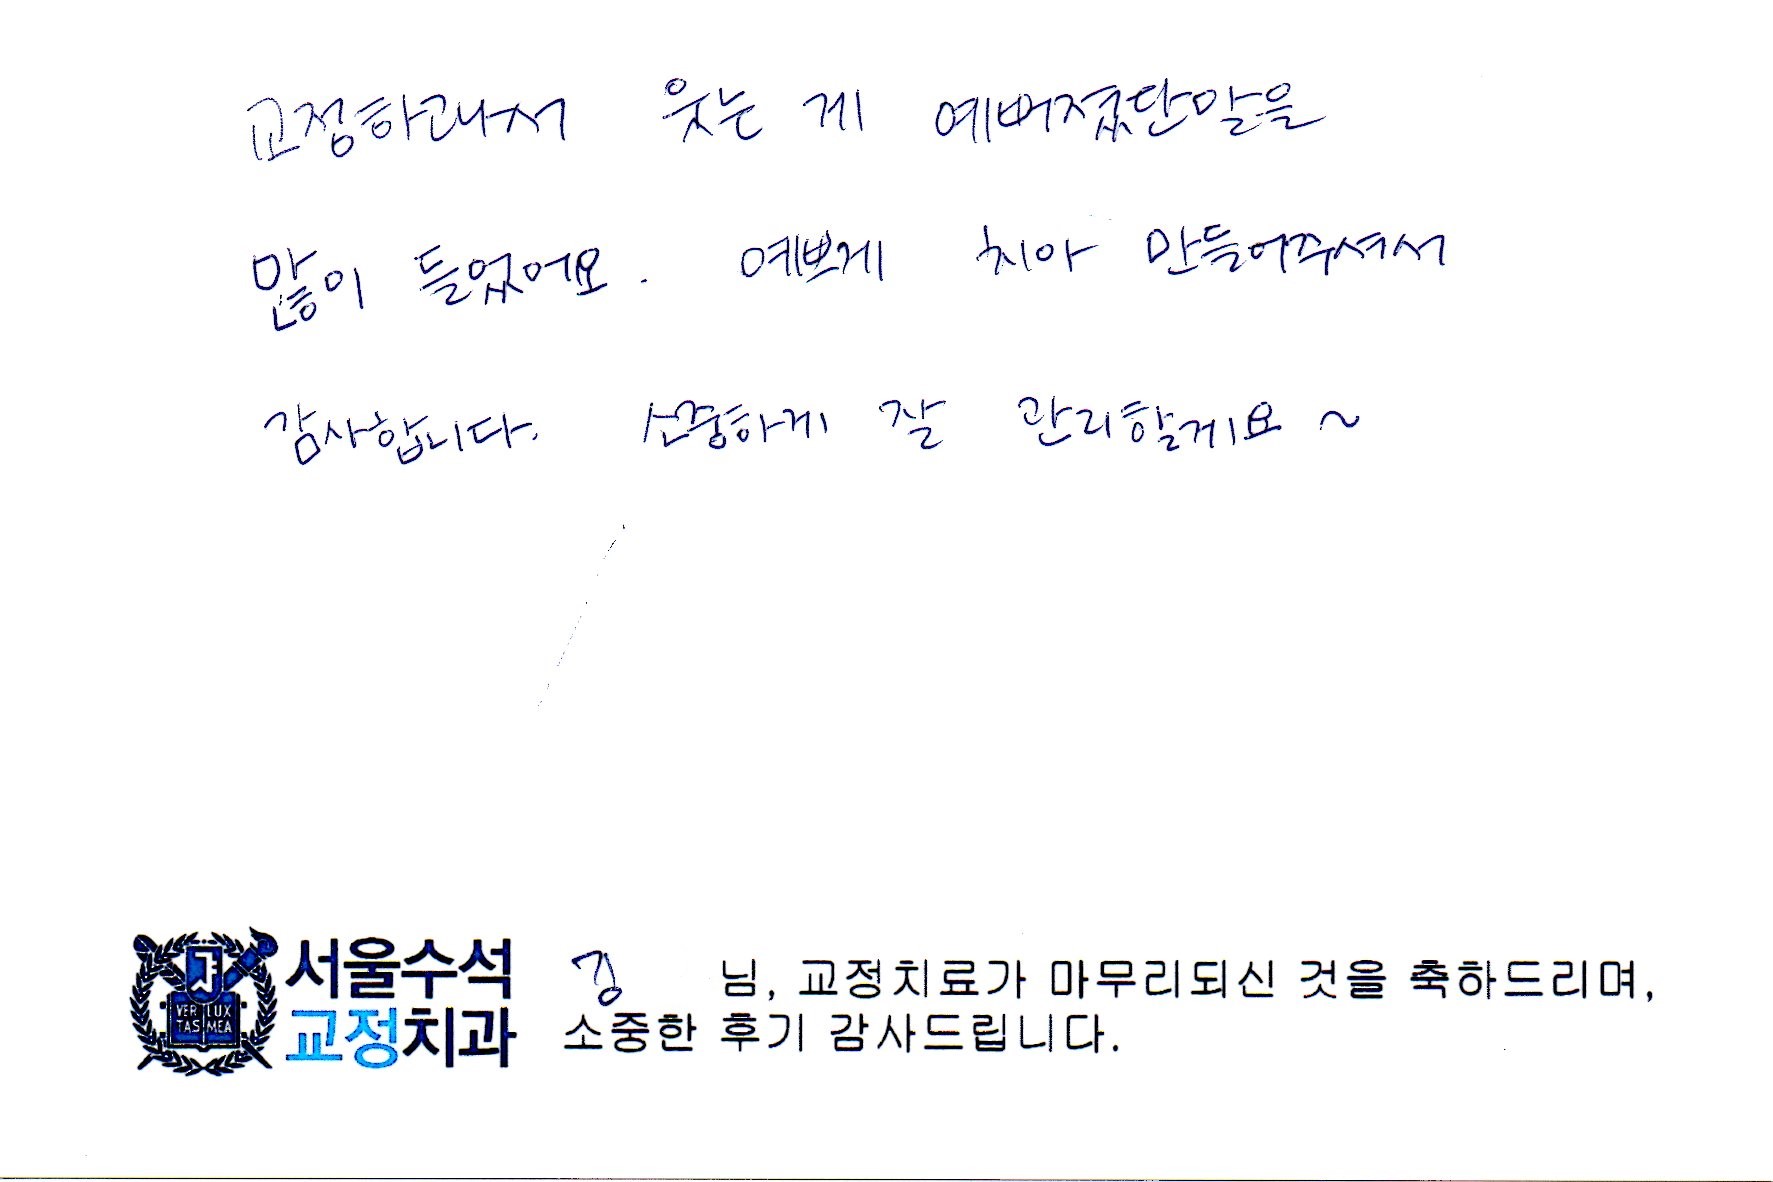 교정하고나서 웃는 게 예뻐졌단말을
많이 들었어요. 예쁘게 치아 만들어주셔서
감사합니다. 소중하게 잘 관리할게요~
VERI LUX
TAS MEA
서울수석
교정치과
김 님, 교정치료가 마무리되신 것을 축하드리며,
소중한 후기 감사드립니다.